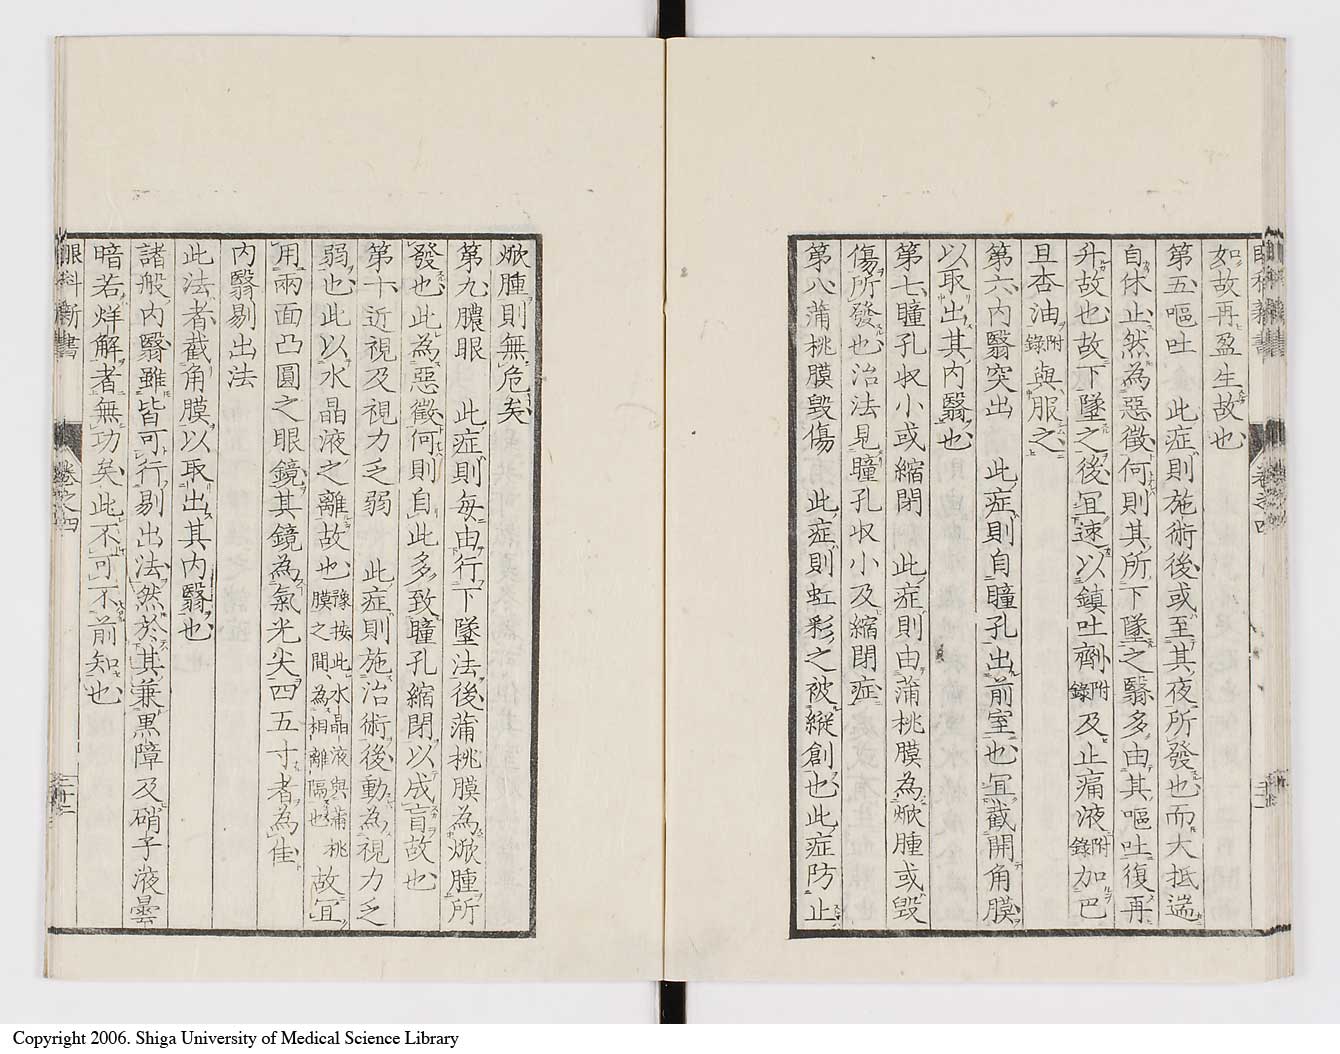 如故再盈生故也
第五嘔吐　此症則施術後或至其夜所發也而大抵遄
自休止然為惡徵何則其所下墜之翳多由其嘔吐復再
升故也故下墜之後宜速以鎮吐劑附錄及止痛液附錄加巴
旦杏油附錄與服之
第六內翳突出　此症則自瞳孔出前室也宜截開角膜
以取出其內翳也
第七瞳孔收小或縮閉　此症則由蒲桃膜為焮腫或毀
傷所發也治法見瞳孔收小及縮閉症
第八蒲桃膜毀傷　此症則虹彩之被縱創也此症防止
焮腫則無危矣
第九膿眼　此症則每由行下墜法後蒲桃膜為焮腫所
發也此為惡徵何則自此多致瞳孔縮閉以成盲故也
第十近視及視力乏弱　此症則施治術後動為視力乏
弱也此以水晶液之離故也豫按此水晶液與蒲桃膜之間為相離隔也故宜
用兩面凸圓之眼鏡其鏡為氣光尖四五寸者為佳
內翳剔出法
此法者截角膜以取出其內翳也
諸般內翳雖皆可行剔出法然於其兼黑障及硝子液曇
暗若烊解者無功矣此不可不前知也
眼科新書　卷之四
Copyright 2006. Shiga University of Medical Science Library